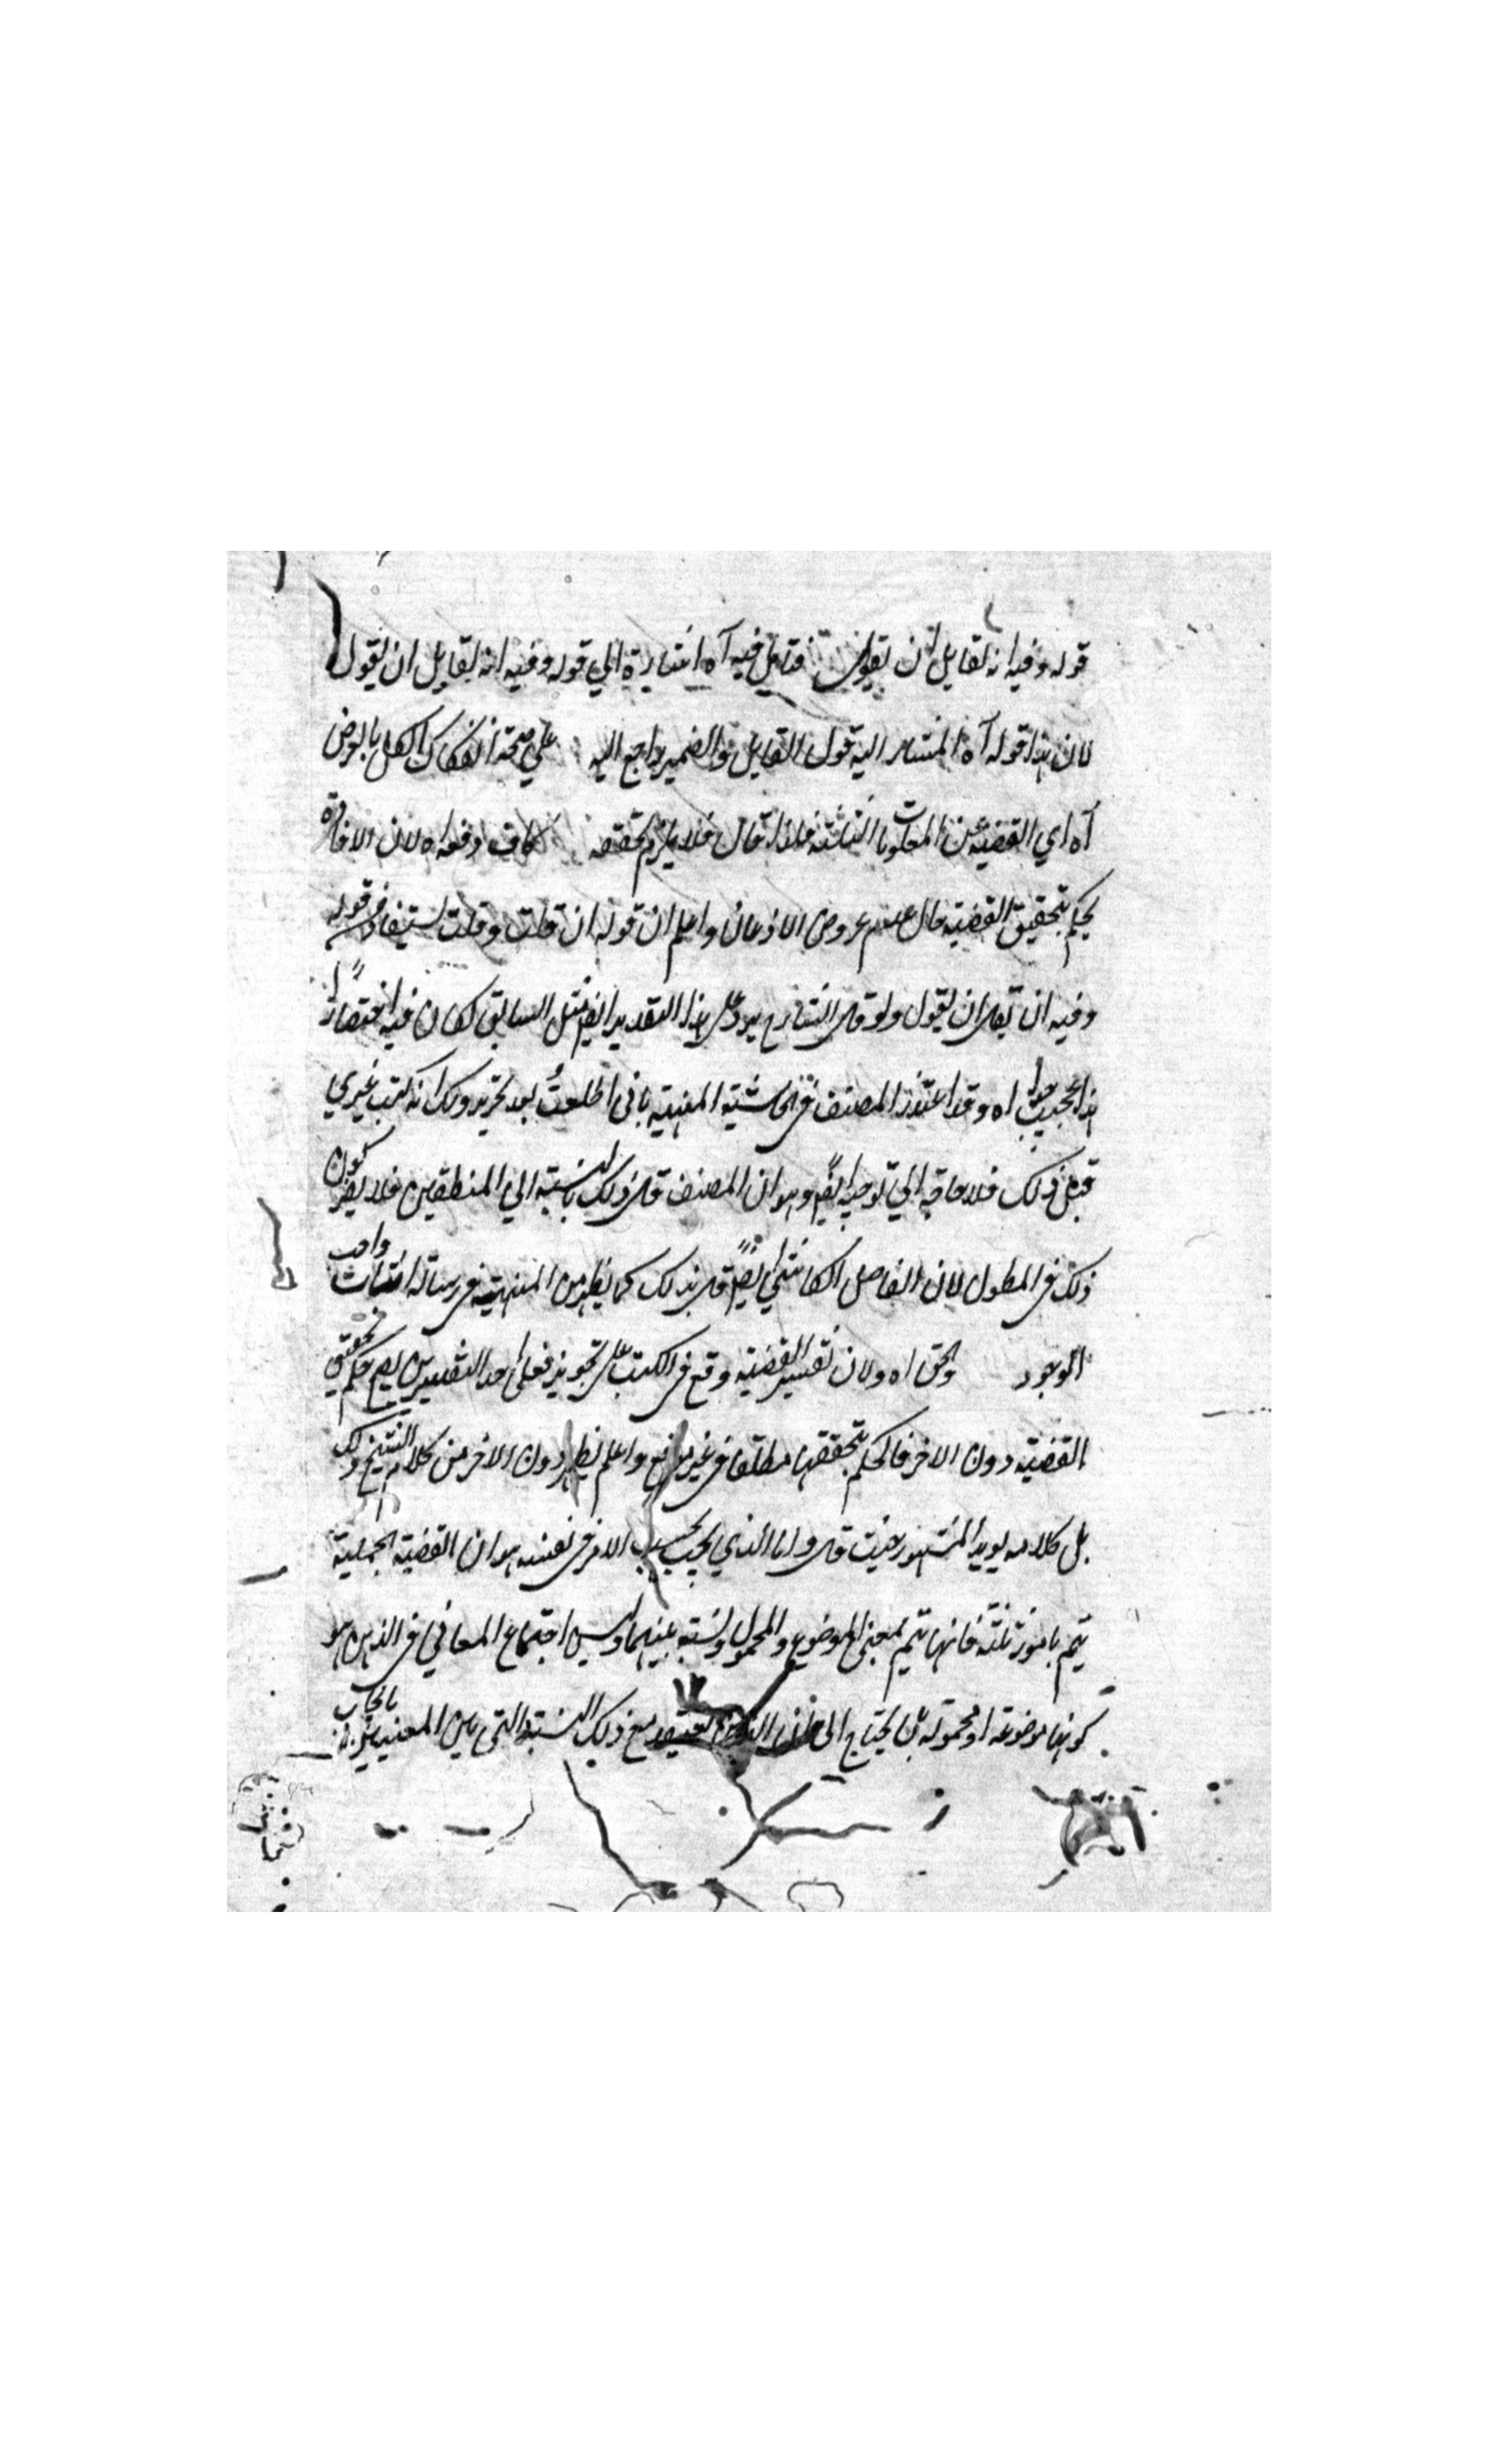 قوله وفيه انه لقايل ان يقول فتامل فيه آه اشارة الي قوله وفيه انه لقايل ان يقول
لان هذا قوله آه المشار اليه قول القايل والضمير راجع اليه علي صحة انفكاك الكل بالعرض
آه اي القضية عن المعلومات الثلثة فلذا قال فلا يلزم تحققه كاف وفعه اه لان الافادة
يحكم بتحقيق القضية حال عدم عروض الاذعان واعلم ان قوله ان قلت وقلت يستفاد من قوله
وفيه ان يقال ان يقول ولو قال الشارح يرد على هذا التقدير ايضا مثل السابق لكان فيه اختصارا
هذا المجيب اه وقد اعتذر المصنف في الحاشية المنهية باني اطلعت بعد تحرير ذلك انه كتب غيري
قبل ذلك فلا حاجة الي توجيه ايضا وهو ان المصنف قال ذلك بالنسبة الي المنطقيين فلا يضر كون
ذلك في المطول لان الفاضل الكاشي ايضا قال بذلك كما يظهر من المنهية في رسالة اثبات واجب
الوجود والحق اه ولان تفسير القضية وقع في الكتب على تجويز فعلى احد التفسيرين يصح حكم بتحقيق
القضية دون الاخر فالحكم بتحققها مطلقا في غير موقع واعلم يظهر دون الاخر من كلام الشيخ ذلك
بل كلامه يويد المشهور حيث قال واما الذي يجب بحسب الامر في نفسه هو ان القضية الحملية
يتم بامور ثلثة فانها تتم بمعنى الموضوع والمحمول ونسبة بينهما وليس اجتماع المعاني في الذهن هو
كونها موضوعه او محموله بل يحتاج الى الذهن يعتقد مع ذلك النسبة التي بين المعنيين بايجاب